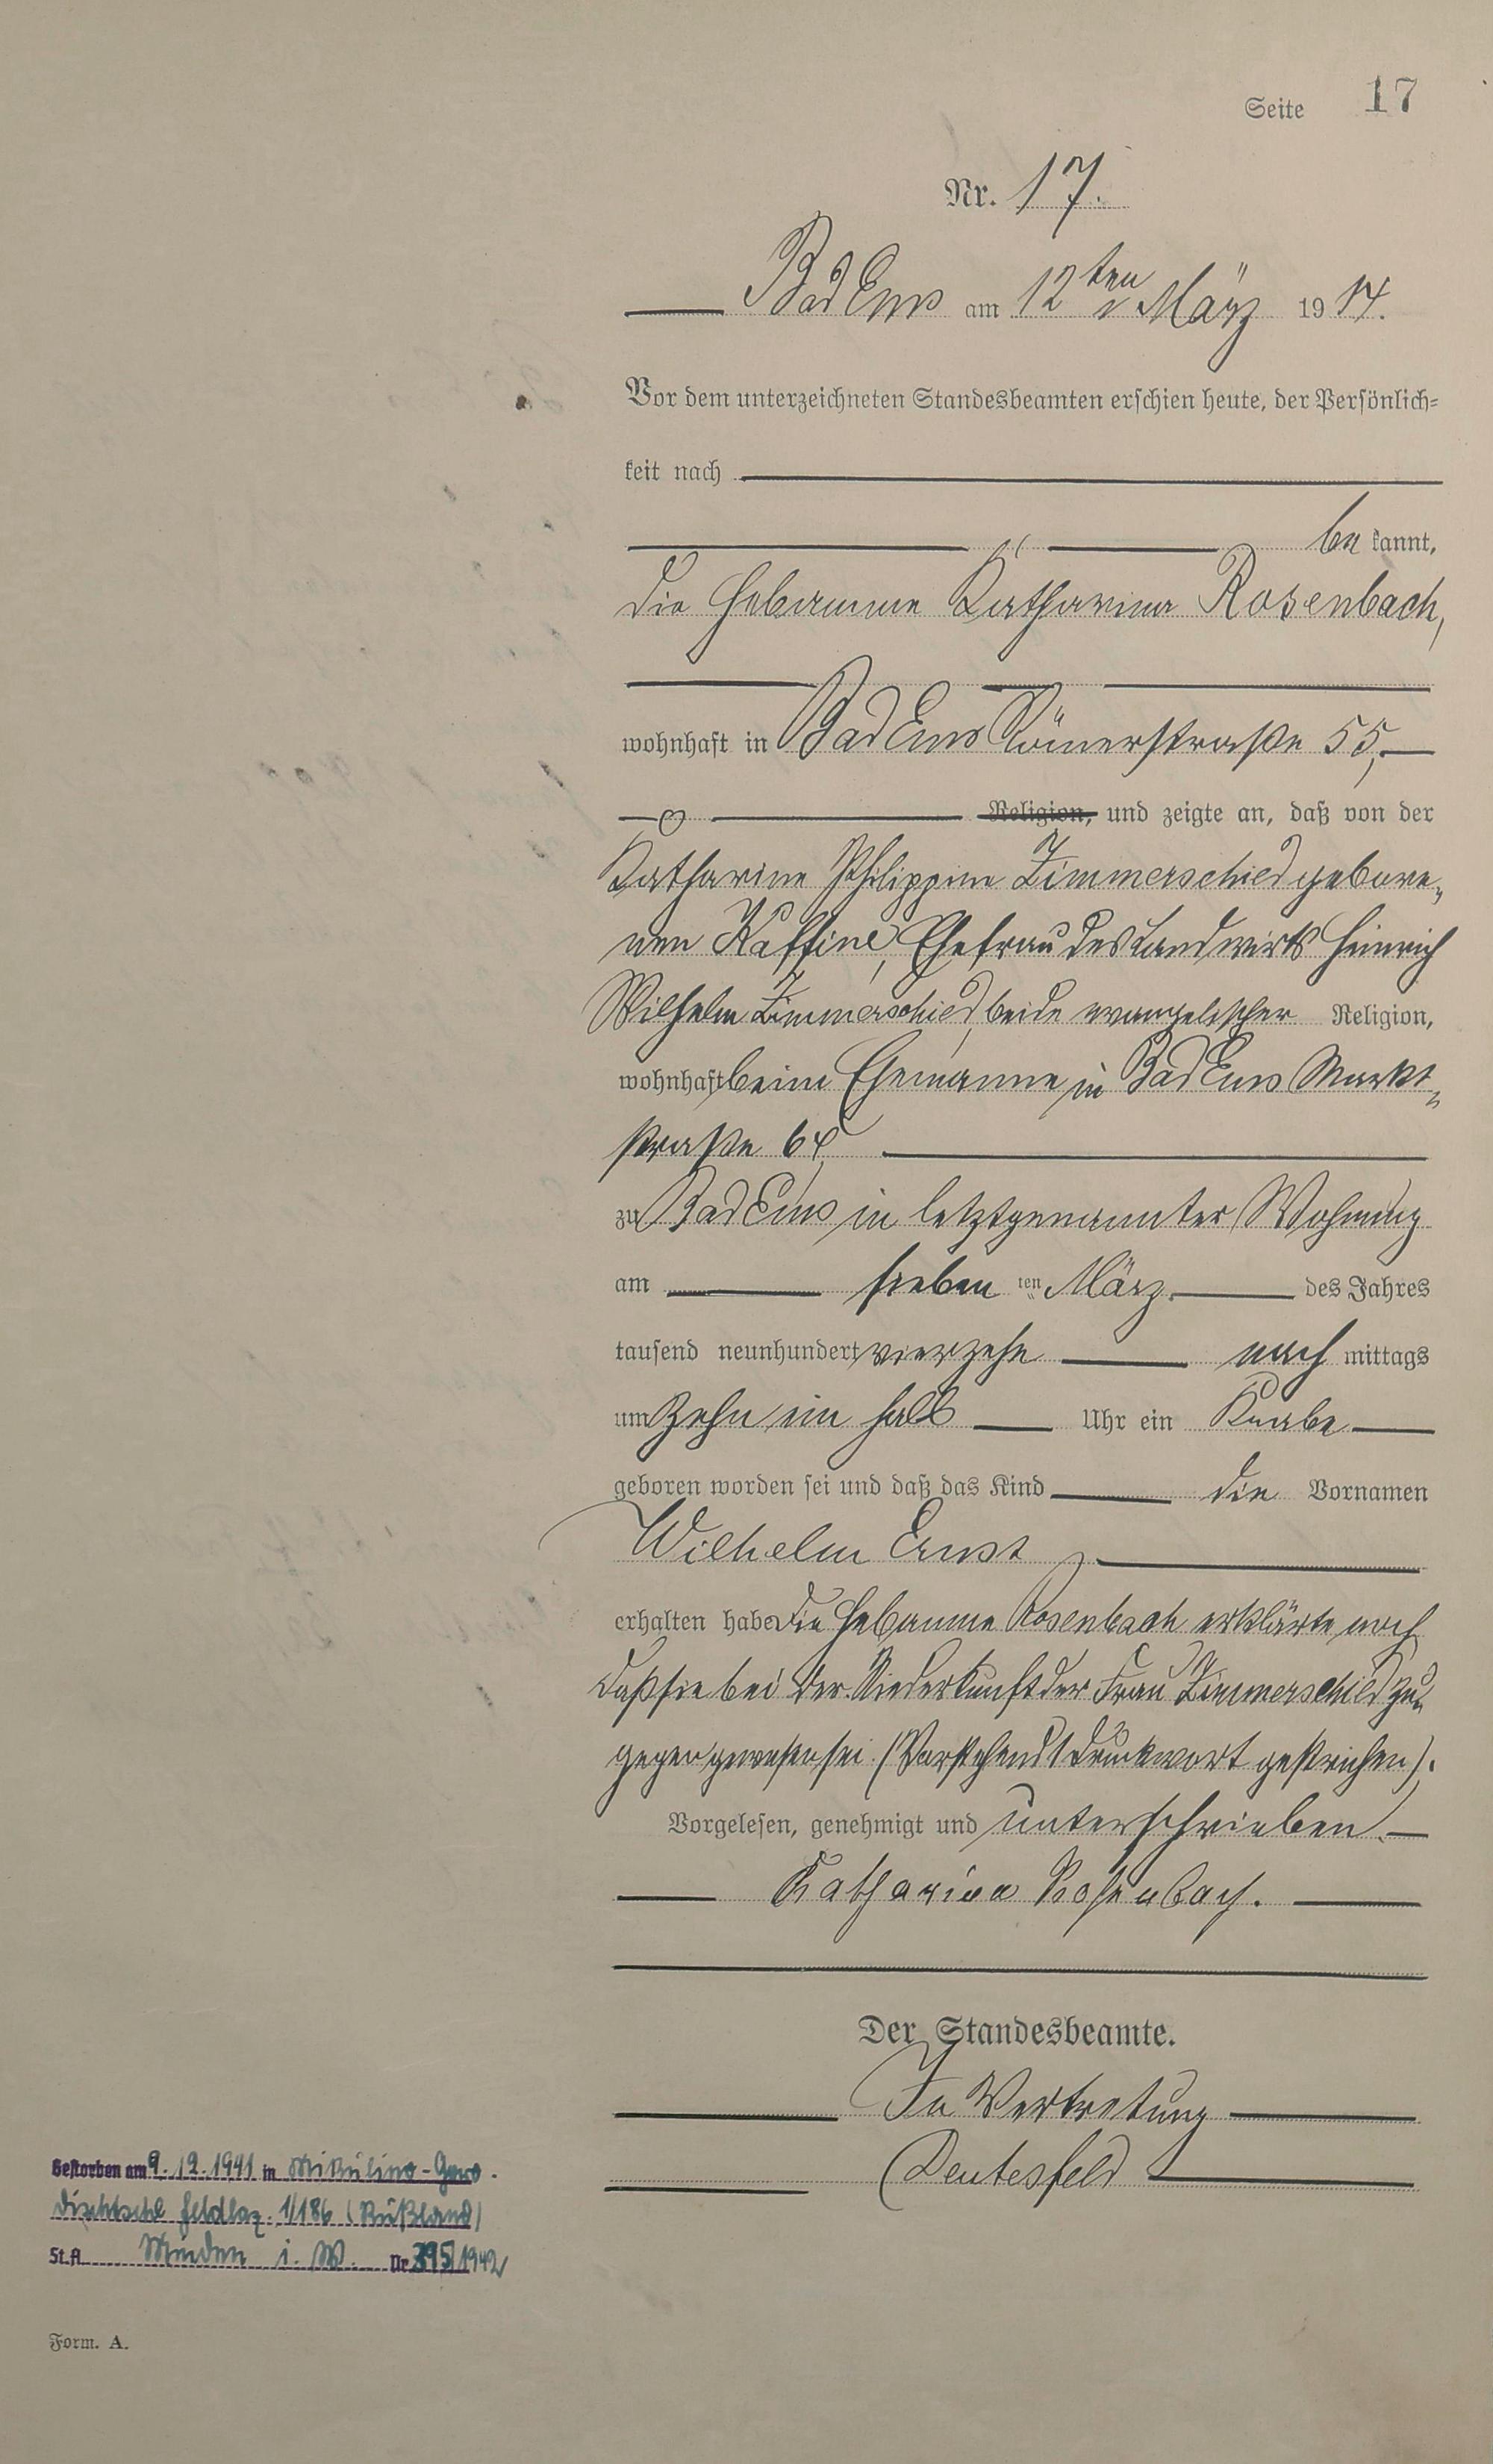 Seite 17
Nr. 17.
Bad Ems am 12ten März 1914.
Vor dem unterzeichneten Standesbeamten erschien heute, der Persönlich-
keit nach
be kannt,
die Hebamme Katharina Rosenbach,
wohnhaft in Bad Ems Römerstraße 55,
Religion, und zeigte an, daß von der
Katharine Philippine Zimmerschied gebore-
nen Kaffine, Ehefrau des Landwirts Heinrich
Wilhelm Zimmerschied, beide evangelischer Religion,
wohnhaft beim Ehemanne in Bad Ems Markt-
straße 64,
zu Bad Ems in letztgenannter Wohnung
am sieben ten März des Jahres
tausend neunhundert vierzehn nach mittags
um zehn ein halb Uhr ein Knabe
geboren worden sei und daß das Kind die Vornamen
Wilhelm Ernst
erhalten habe. Die Hebamme Rosenbach erklärte noch
daß sie bei der Niederkunft der Frau Zimmerschied zu-
gegen gewesen sei. (Vorstehend 1 Druckwort gestrichen).
Vorgelesen, genehmigt und unterschrieben.
Katharina Rosenbach.
Der Standesbeamte.
In Vertretung
Deutesfeld
Gestorben am 9.12.1941 in Mikulino-Goro-
dischtsche Feldlaz. 1/186 (Rußland)
St.A. Minden i. W. Nr. 395/1942
Form. A.